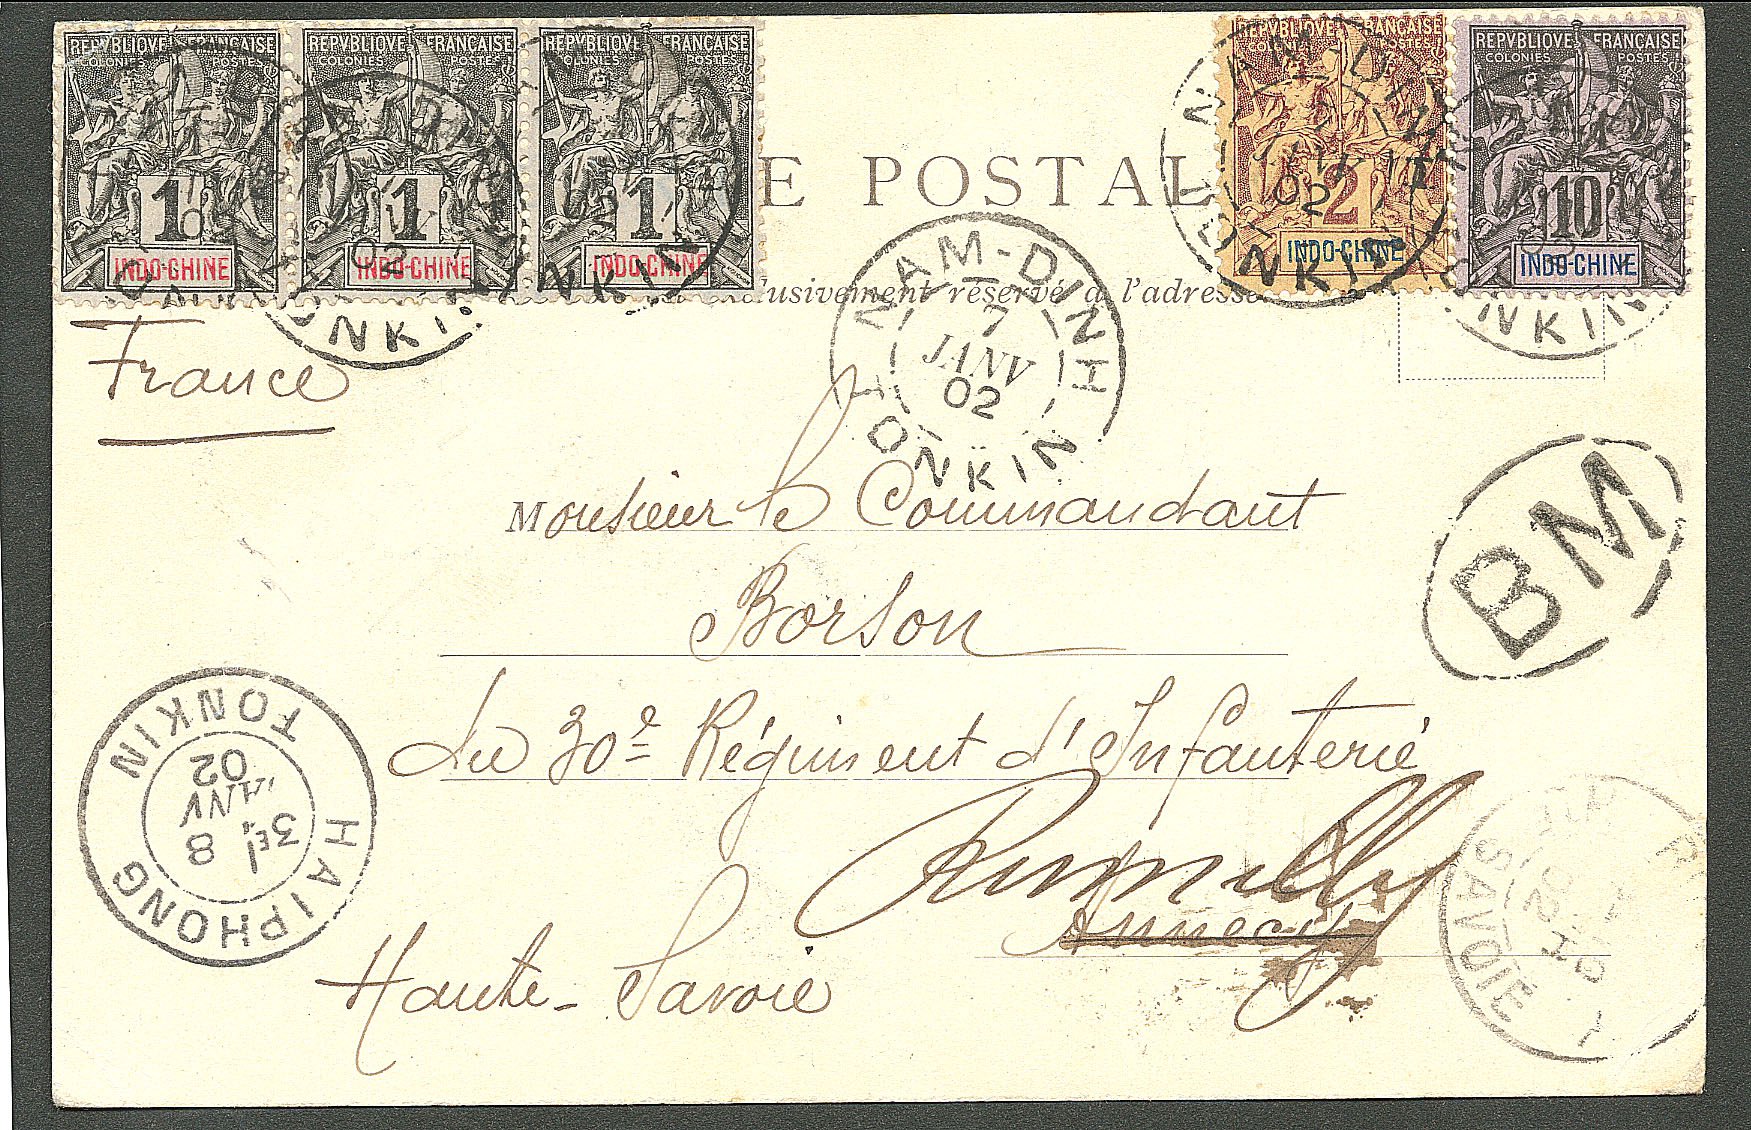 REPVBLIQVE FRANÇAISE REPVBLIQVE FRANÇAISE REPVBLIQVE FRANÇAISE REPVBLIQVE FRANÇAISE REPVBLIQVE FRANÇAISE
COLONIES POSTES COLONIES POSTES COLONIES POSTES COLONIES POSTES COLONIES POSTES
1 1 1 2 10
INDO-CHINE INDO-CHINE INDO-CHINE INDO-CHINE INDO-CHINE
E POSTAL
exclusivement réservé à l'adresse
NAM-DINH
7
JANV
02
TONKIN
NAM-DINH
7
JANV
02
TONKIN
France
Monsieur le Commandant
Borson
du 30e Régiment d'Infanterie
Rumilly
Annecy
Haute-Savoie
BM
HAIPHONG
3E
8
JANV
02
TONKIN
SAVOIE